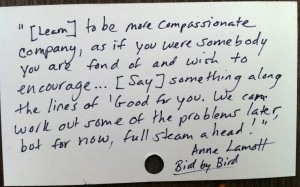 "[Learn] to be more compassionate
company, as if you were somebody
you are fond of and wish to
encourage... [Say] something along
the lines of 'Good for you. We can
work out some of the problems later,
but for now, full steam ahead!'"
Anne Lamott
Bird by Bird